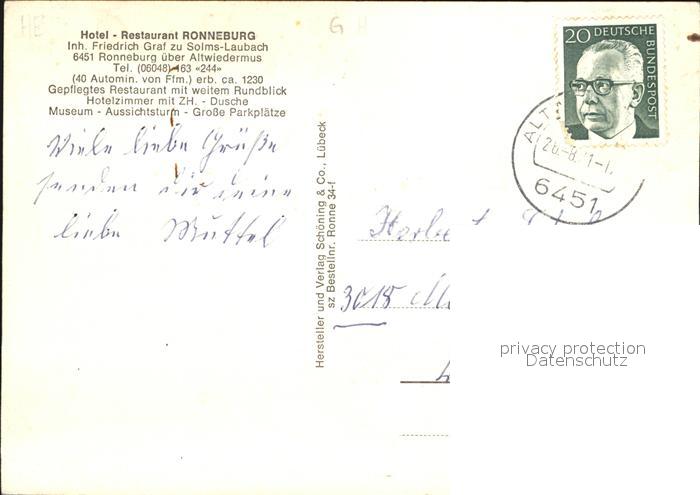 HE
G H
Hotel - Restaurant RONNEBURG
Inh. Friedrich Graf zu Solms-Laubach
6451 Ronneburg über Altwiedermus
Tel. (06048) 163 «244»
(40 Automin. von Ffm.) erb. ca. 1230
Gepflegtes Restaurant mit weitem Rundblick
Hotelzimmer mit ZH. - Dusche
Museum - Aussichtsturm - Große Parkplätze
Viele liebe Grüße
senden dir deine
liebe Muttel
Hersteller und Verlag Schöning & Co., Lübeck
sz Bestellnr. Ronne 34-f
20 DEUTSCHE
BUNDESPOST
ALT
6451
3015
privacy protection
Datenschutz